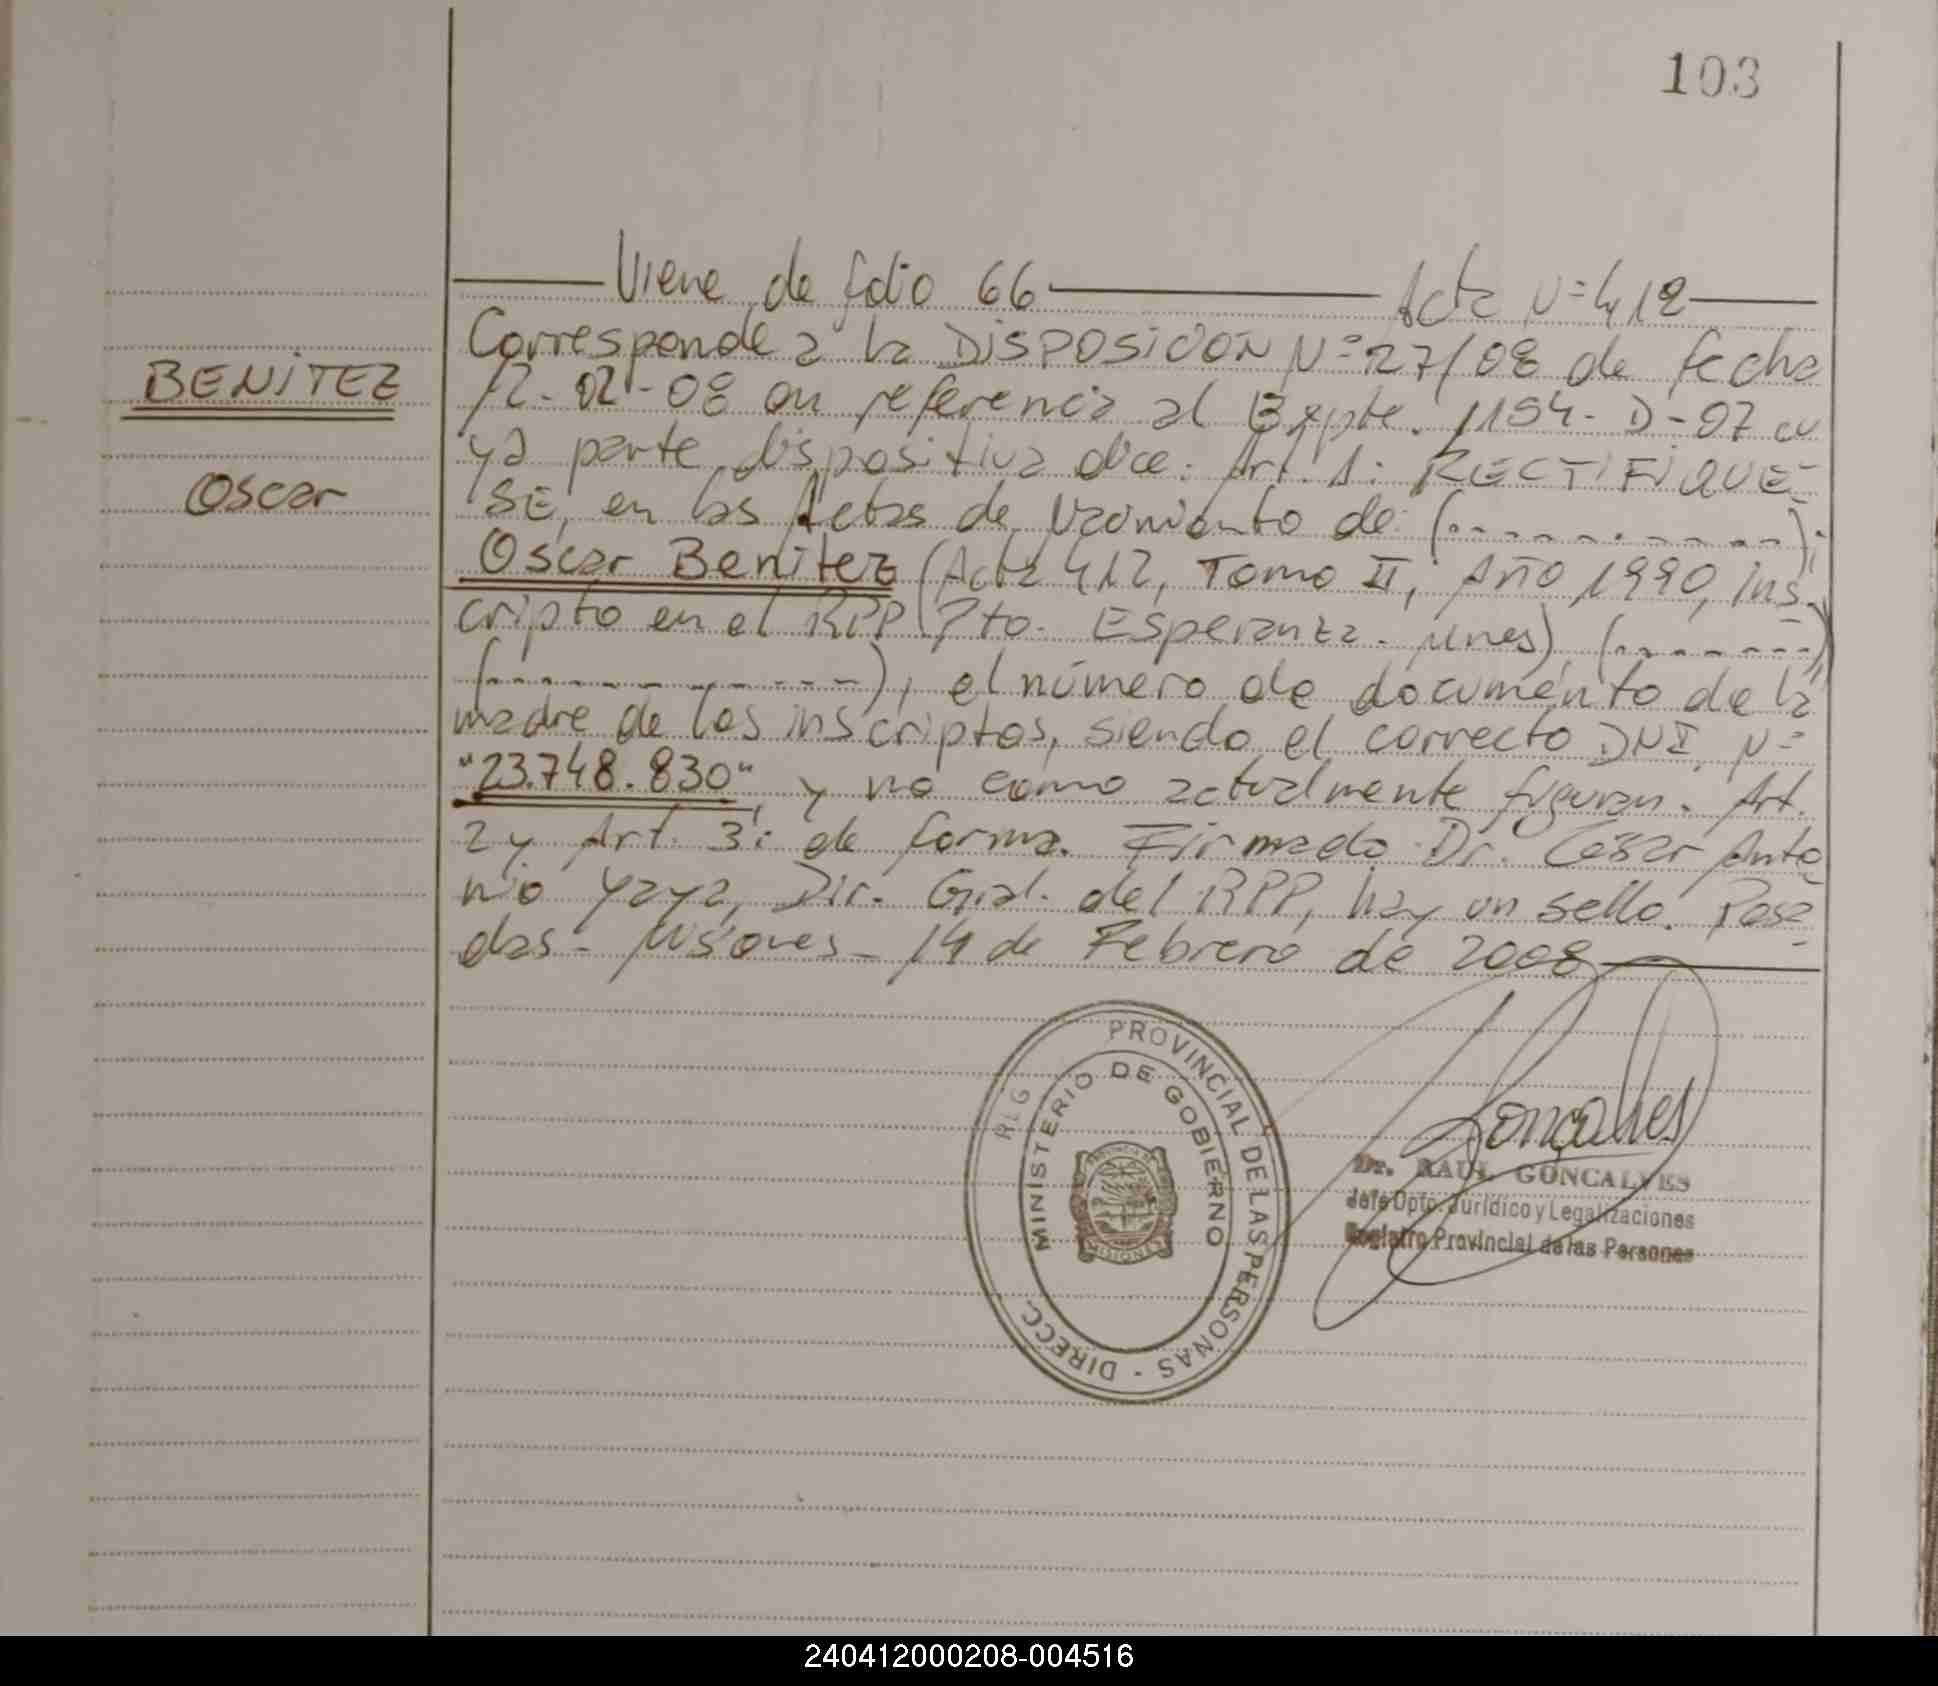 103
Viene de folio 66 Acta Nº 412
Corresponde a la DISPOSICION Nº 27/08 de fecha
BENITEZ
12-02-08 en referencia al Expte. 1154-D-07 cu
ya parte dispositiva dice: Art. 1: RECTIFIQUE-
Oscar
SE, en las Actas de Nacimiento de: (-----------);
Oscar Benitez (Acta 412, Tomo II, Año 1990, ins-
cripto en el RPP Pto. Esperanza. Mnes), (-------)
(-------------), el número de documento de la
madre de los inscriptos, siendo el correcto DNI Nº
"23.748.830", y no como actualmente figuran. Art.
2 y Art. 3: de forma. Firmado Dr. César Anto
nio Yaya, Dir. Gral. del RPP, hay un sello. Posa-
das - Misiones - 14 de Febrero de 2008
REG PROVINCIAL DE LAS PERSONAS - DIRECC.
MINISTERIO DE GOBIERNO
PROVINCIA DE
MISIONES
Goncalves
Dr. RAUL GONCALVES
Jefe Dpto. Jurídico y Legalizaciones
Registro Provincial de las Personas
240412000208-004516